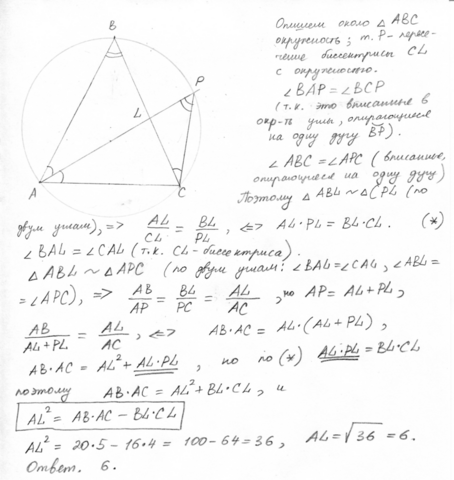 B
P
L
A
C
Опишем около △ ABC
окружность; т. P - пересе-
чение биссектрисы CL
с окружностью.
∠BAP = ∠BCP
(т.к. это вписанные в
окр-ть углы, опирающиеся
на одну дугу BP).
∠ABC = ∠APC (вписанные,
опирающиеся на одну дугу)
Поэтому △ABL ~ △CPL (по
двум углам), => AL/CL = BL/PL, <=> AL·PL = BL·CL. (*)
∠BAL = ∠CAL (т.к. CL - биссектриса).
△ABL ~ △APC (по двум углам: ∠BAL = ∠CAL, ∠ABL =
= ∠APC), => AB/AP = BL/PC = AL/AC, но AP = AL + PL,
AB/(AL+PL) = AL/AC, <=> AB·AC = AL·(AL + PL),
AB·AC = AL² + AL·PL, но по (*) AL·PL = BL·CL
поэтому AB·AC = AL² + BL·CL, и
AL² = AB·AC − BL·CL
AL² = 20·5 − 16·4 = 100 − 64 = 36, AL = √36 = 6.
Ответ. 6.